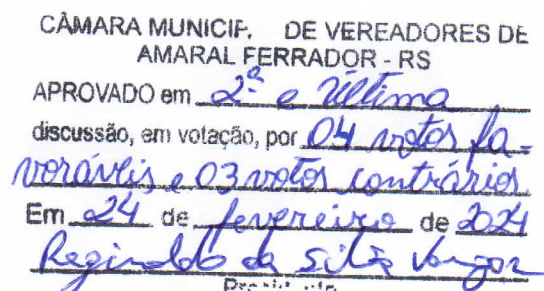 CÂMARA MUNICIP. DE VEREADORES DE
AMARAL FERRADOR - RS
APROVADO em 2ª e última
discussão, em votação, por 04 votos fa-
voráveis e 03 votos contrários
Em 24 de fevereiro de 2024
Reginaldo da Silva